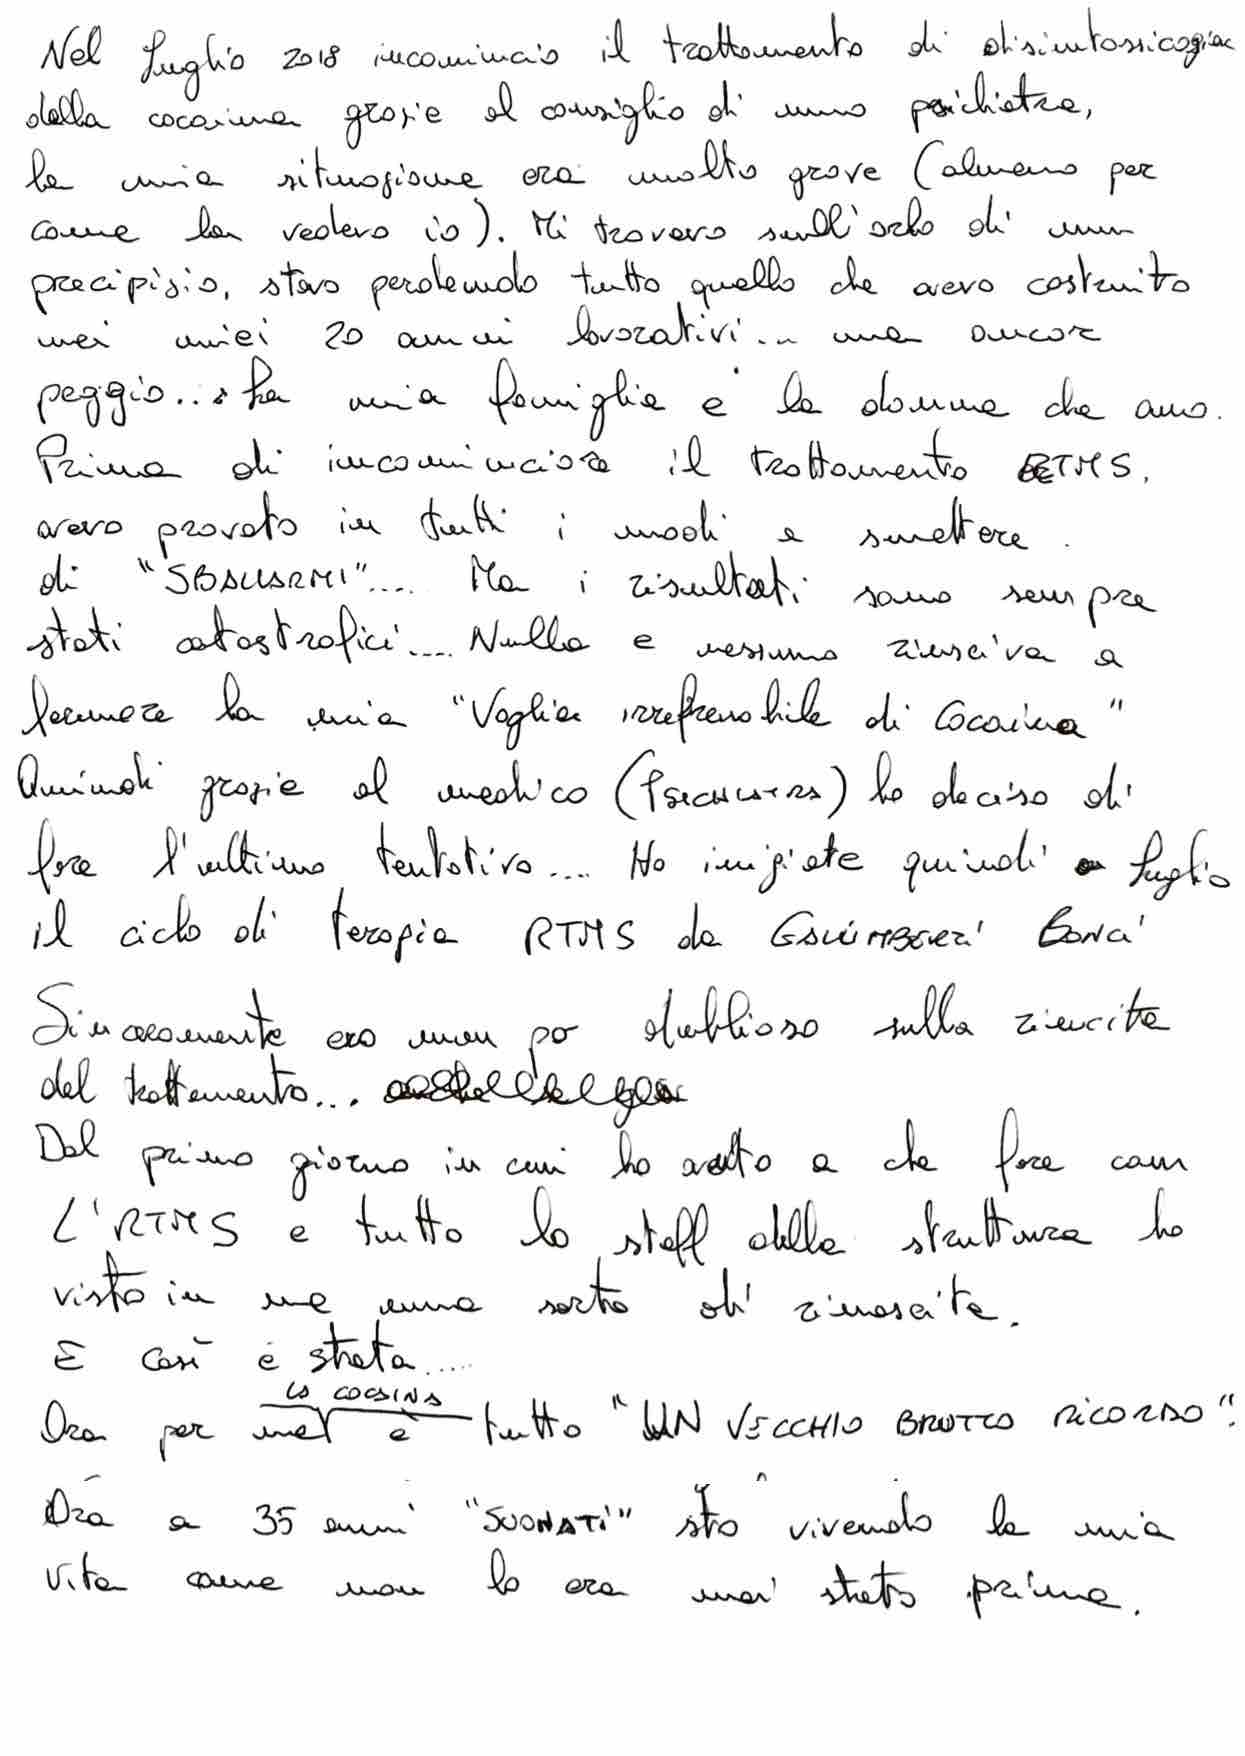 Nel Luglio 2018 incomincio il trattamento di disintossicazion
della cocaina grazie al consiglio di uno psichiatra,
la mia situazione era molto grave (almeno per
come la vedevo io). Mi trovavo sull'orlo di un
precipizio, stavo perdendo tutto quello che avevo costruito
nei miei 20 anni lavorativi... ma ancor
peggio... la mia famiglia e la donna che amo.
Prima di incominciare il trattamento RTMS,
avevo provato in tutti i modi a smettere
di "SBALLARMI".... Ma i risultati sono sempre
stati catastrofici.... Nulla e nessuno riusciva a
fermare la mia "Voglia irrefrenabile di Cocaina"
Quindi grazie al medico (PSICHIATRA) ho deciso di
fare l'ultimo tentativo.... Ho iniziato quindi a Luglio
il ciclo di terapia RTMS da GALLIMBERTI BONCI
Sinceramente ero un po dubbioso sulla riuscita
del trattamento...
Dal primo giorno in cui ho avuto a che fare con
L'RTMS e tutto lo staff della struttura ho
visto in me una sorta di rinascita.
E così è stata.....
Ora per me la cocaina è tutto "UN VECCHIO BRUTTO RICORDO".
Ora a 35 anni "SUONATI" sto vivendo la mia
vita come non lo era mai stata prima.